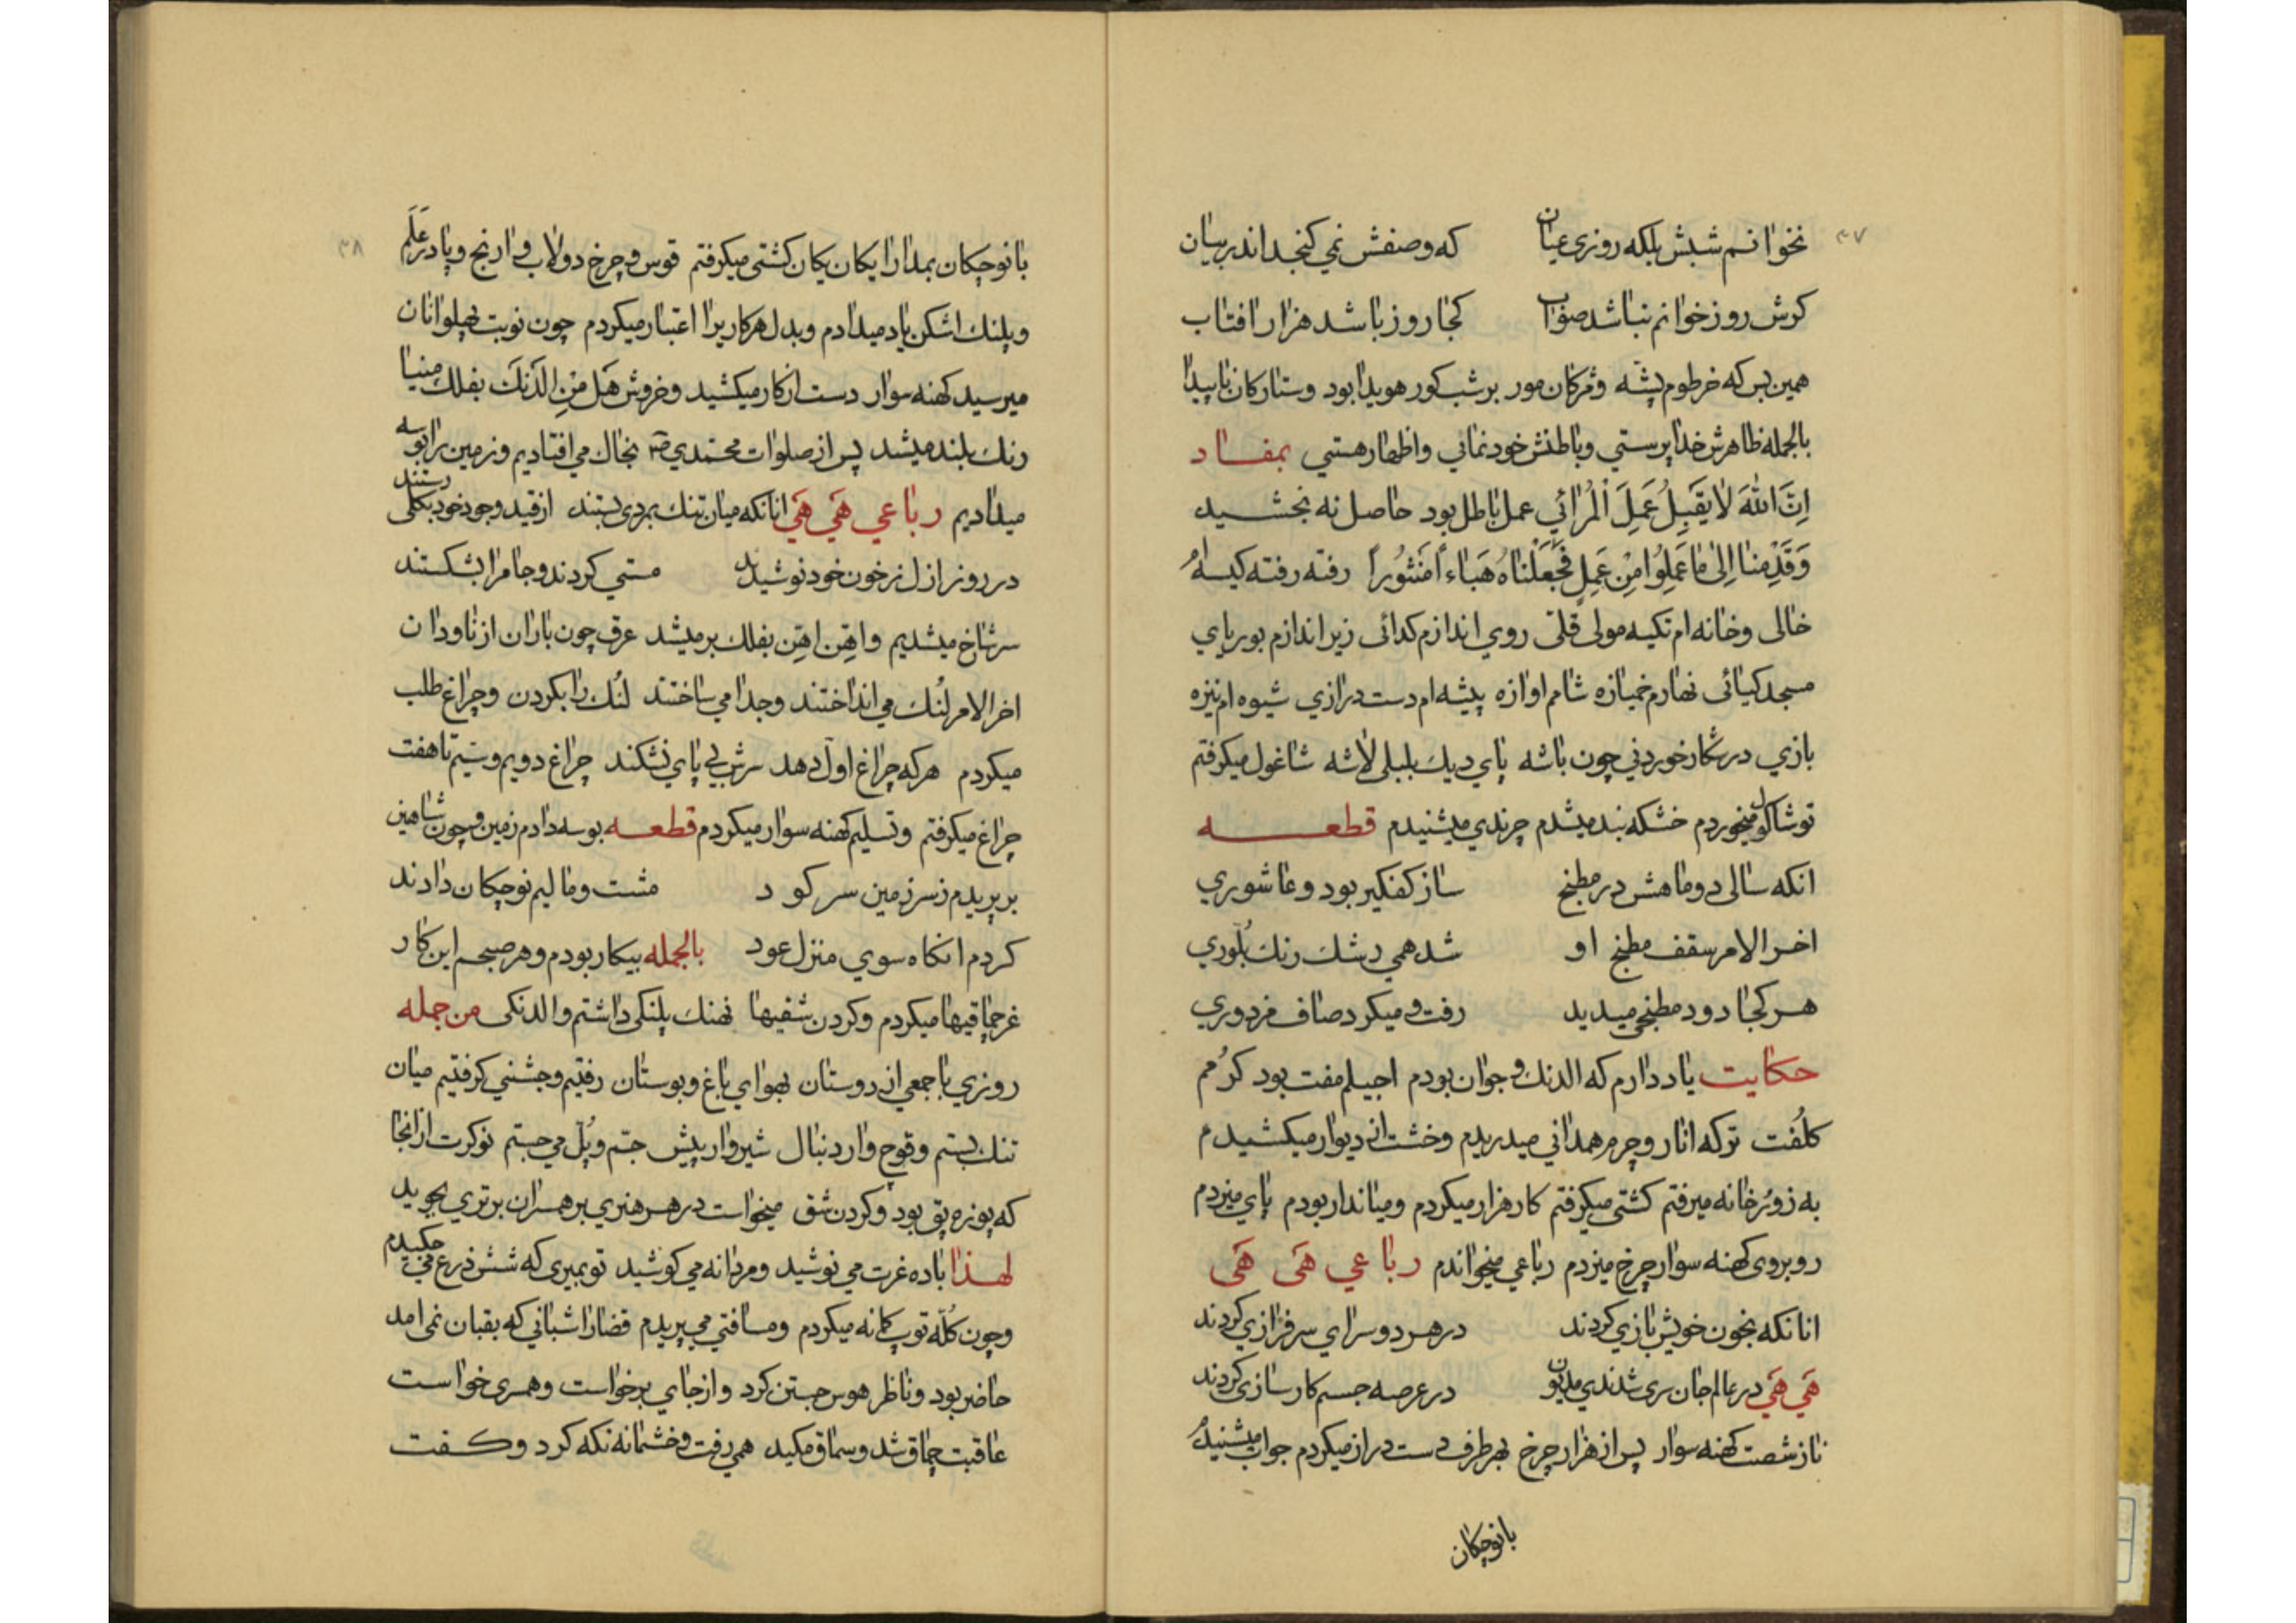 ۳۷
نخوانم شبش بلکه روزی عیان که وصفش نمی کنجد اندر بیان
کرش روز خوانم نباشد صواب کجا روز باشد هزار افتاب
همین بس که خرطوم پشه و مژکان مور بر شب کور هویدا بود و ستارکان ناپیدا
بالجمله ظاهرش خدا پرستی و باطنش خودنمائی و اظهار هستی بمفاد
اِنَّ اللهَ لا یَقبِلُ عَمِلَ اْلمُرائی عمل باطل بود حاصل نه بخشید
وَقَدِّمنا اِلیٰ ما عَمِلُوا مِنْ عَمِلٍ فَجَعَلْناهُ هَباءً مَنثُوراً رفته رفته کیسه‌ام
خالی و خانه ام تکیه مولی قلی روی اندازم کدائی زیر اندازم بوریای
مسجد کیائی نهارم خمیازه شامم اوازه پیشه ام دست درازی شیوه ام نیزه
بازی در شکار خوردنی چون باشه پای دیک بلبلی لاشه شاغول میکرفتم
توشاکول میخوردم خشکه بند میشدم چرندی میشنیدم قطعه
انکه سالی دو ماهش در مطبخ ساز کفکیر بود و عاشوری
اخر الامر سقف مطبخ او شد همی رشک رنک بُلّوری
هر کجا دود مطبخی میدید رفت و میکرد صاف مزدوری
حکایت یاد دارم که الدنک و جوان بودم اجیلم مفت بود کرُمم
کلُفت ترکه انار و چرم همدانی میدریدم و خشت از دیوار میکشیدم
به زورُخانه میرفتم کشتی میکرفتم کار هزار میکردم و میاندار بودم پای میزدم
روبروی کهنه سوار چرخ میزدم رباعی میخواندم رباعی هَی هَی
انانکه بخون خویش بازی کردند در هر دو سرای سرفرازی کردند
هَی هَی در عالم جان سری شدندی مدیون در عرصه جسم کارسازی کردند
ناز شصت کهنه سوار پس از هزار چرخ بهر طرف دست دراز میکردم جواب میشنیدم
بانوچکان
۳۸
بانوچکان بمدارا یکان یکان کشتی میکرفتم قوس و چرخ دولاب وارنج و پا در عَلَم
و پلنک اشکن یاد میدادم و بدل هر کار یرا اعتبار میکردم چون نوبت پهلوانان
میرسید کهنه سوار دست از کار میکشید و خروش هَل مْنِ الَدَنَک بفلک مینیا
رنک بلند میشد پس از صلوات محمّدی ص بخاک می افتادیم و زمین را بوسه
میدادیم رباعی هَی هَی انانکه میان تنک بمردی بستند از قید وجود خود بکلی رستند
در روز ازل ز خون خود نوشیدند مستی کردند و جام را بشکستند
سرشاخ میشدیم و اهِن اهِن بفلک بر میشد عرق چون باران از ناودان
اخر الامر لُنک می انداختند و جدا می ساختند لُنک را بکردن و چراغ طلب
میکردم هر که چراغ اول دهد سرش بی پای نشکند چراغ دویم و سّیم تا هفت
چراغ میکرفتم و تسلیم کهنه سوار میکردم قطعه بوسه دادم زمین و چون شاهین
بر پریدم ز سر زمین سر کود مشت و مالیم نوچکان دادند
کردم انکاه سوی منزل عود بالجمله بیکار بودم و هر صبحم این کار
غرچماقیها میکردم و کردن شقیها نهنک پلنکی داشتم و الدنکی من جمله
روزی با جمعی از دوستان بهوای باغ و بوستان رفتیم و جشنی کرفتیم میان
تنک بستم و قوچ وار دنبال شیر وار پیش جتم و پُل می جستم نوکرت ازانجا
که پوزه پق بود و کردن شق میخواست در هر هنری بر همسران برتری بجوید
لهذا باده غرت می نوشید و مردانه می کوشید تو بمیری که شش ذرع می جکیدم
و چون کُلّه توپ کمانه میکردم و مسافتی می پریدم قضا را شبانی که بقبان نمی امد
حاضر بود و ناظر هوس جستن کرد و از جای برخواست و همسری خواست
عاقبت چماق شد و سماق مکید همی رفت و خشمانه نکه کرد و کفت